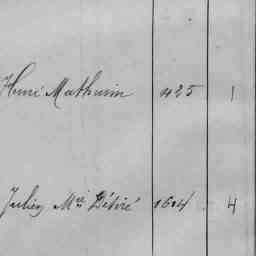 Henri Mathurin 425 1
Julien Mie Désiré 1604 4